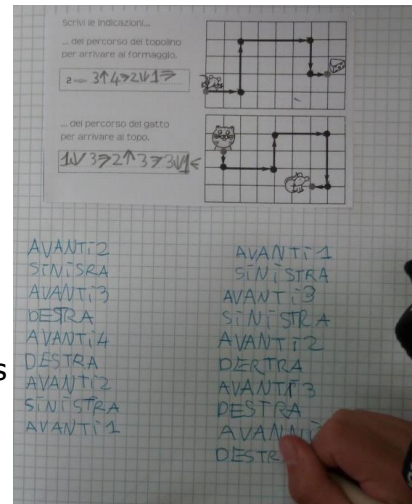 Scrivi le indicazioni...
... del percorso del topolino
per arrivare al formaggio.
2→ 3↑4→2↓1→
... del percorso del gatto
per arrivare al topo.
1↓3→2↑3→3↓1←
AVANTI 2
SINISRA
AVANTI 3
DESTRA
AVANTI 4
DESTRA
AVANTI 2
SINISTRA
AVANTI 1
AVANTI 1
SINISTRA
AVANTI 3
SINISTRA
AVANTI 2
DERTRA
AVANTI 3
DESTRA
AVANNI
DESTR
s